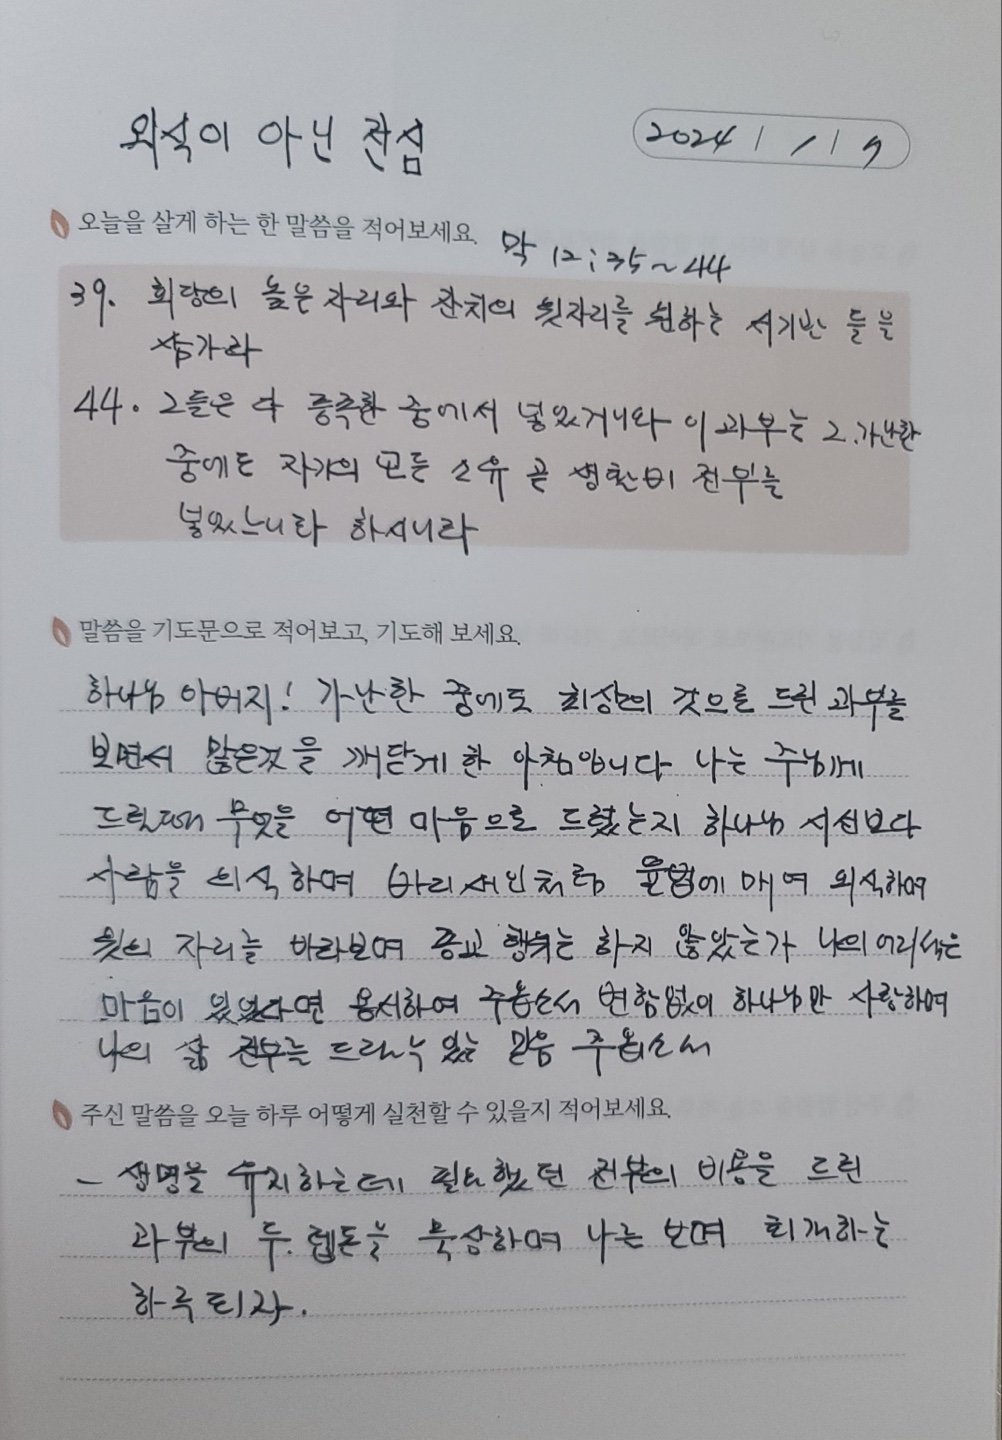 외식이 아닌 진심
2024 / 1 / 19
오늘을 살게 하는 한 말씀을 적어보세요.
막 12:35~44
39. 회당의 높은 자리와 잔치의 윗자리를 원하는 서기관 들을
삼가라
44. 그들은 다 풍족한 중에서 넣었거니와 이 과부는 그 가난한
중에도 자기의 모든 소유 곧 생활비 전부를
넣었느니라 하시니라
말씀을 기도문으로 적어보고, 기도해 보세요.
하나님 아버지! 가난한 중에도 최상의 것으로 드린 과부를
보면서 많은것을 깨닫게 한 아침입니다 나는 주님께
드릴때 무엇을 어떤 마음으로 드렸는지 하나님 시선보다
사람을 의식하며 바리새인처럼 율법에 매여 외식하며
윗의 자리를 바라보며 종교 행위는 하지 않았는가 나의 어리석은
마음이 있었다면 용서하여 주옵소서 변함없이 하나님만 사랑하며
나의 삶 전부를 드릴수 있는 믿음 주옵소서
주신 말씀을 오늘 하루 어떻게 실천할 수 있을지 적어보세요.
- 생명을 유지하는데 필요했던 전부의 비용을 드린
과부의 두 렙돈을 묵상하며 나를 보며 회개하는
하루 되자.